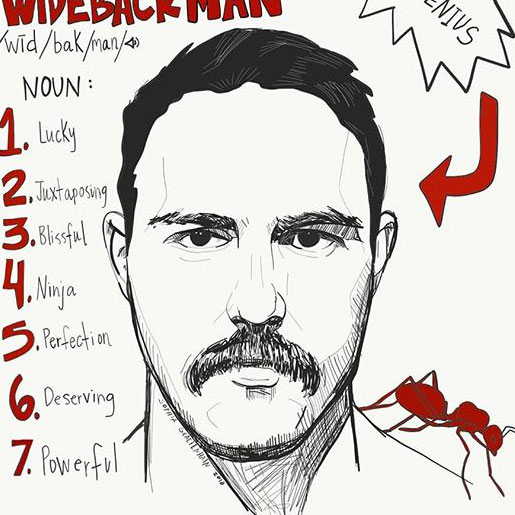 WIDEBACK MAN
/wīd/bak/man/
NOUN:
1. Lucky
2. Juxtaposing
3. Blissful
4. Ninja
5. Perfection
6. Deserving
7. Powerful
ENIUS
2018